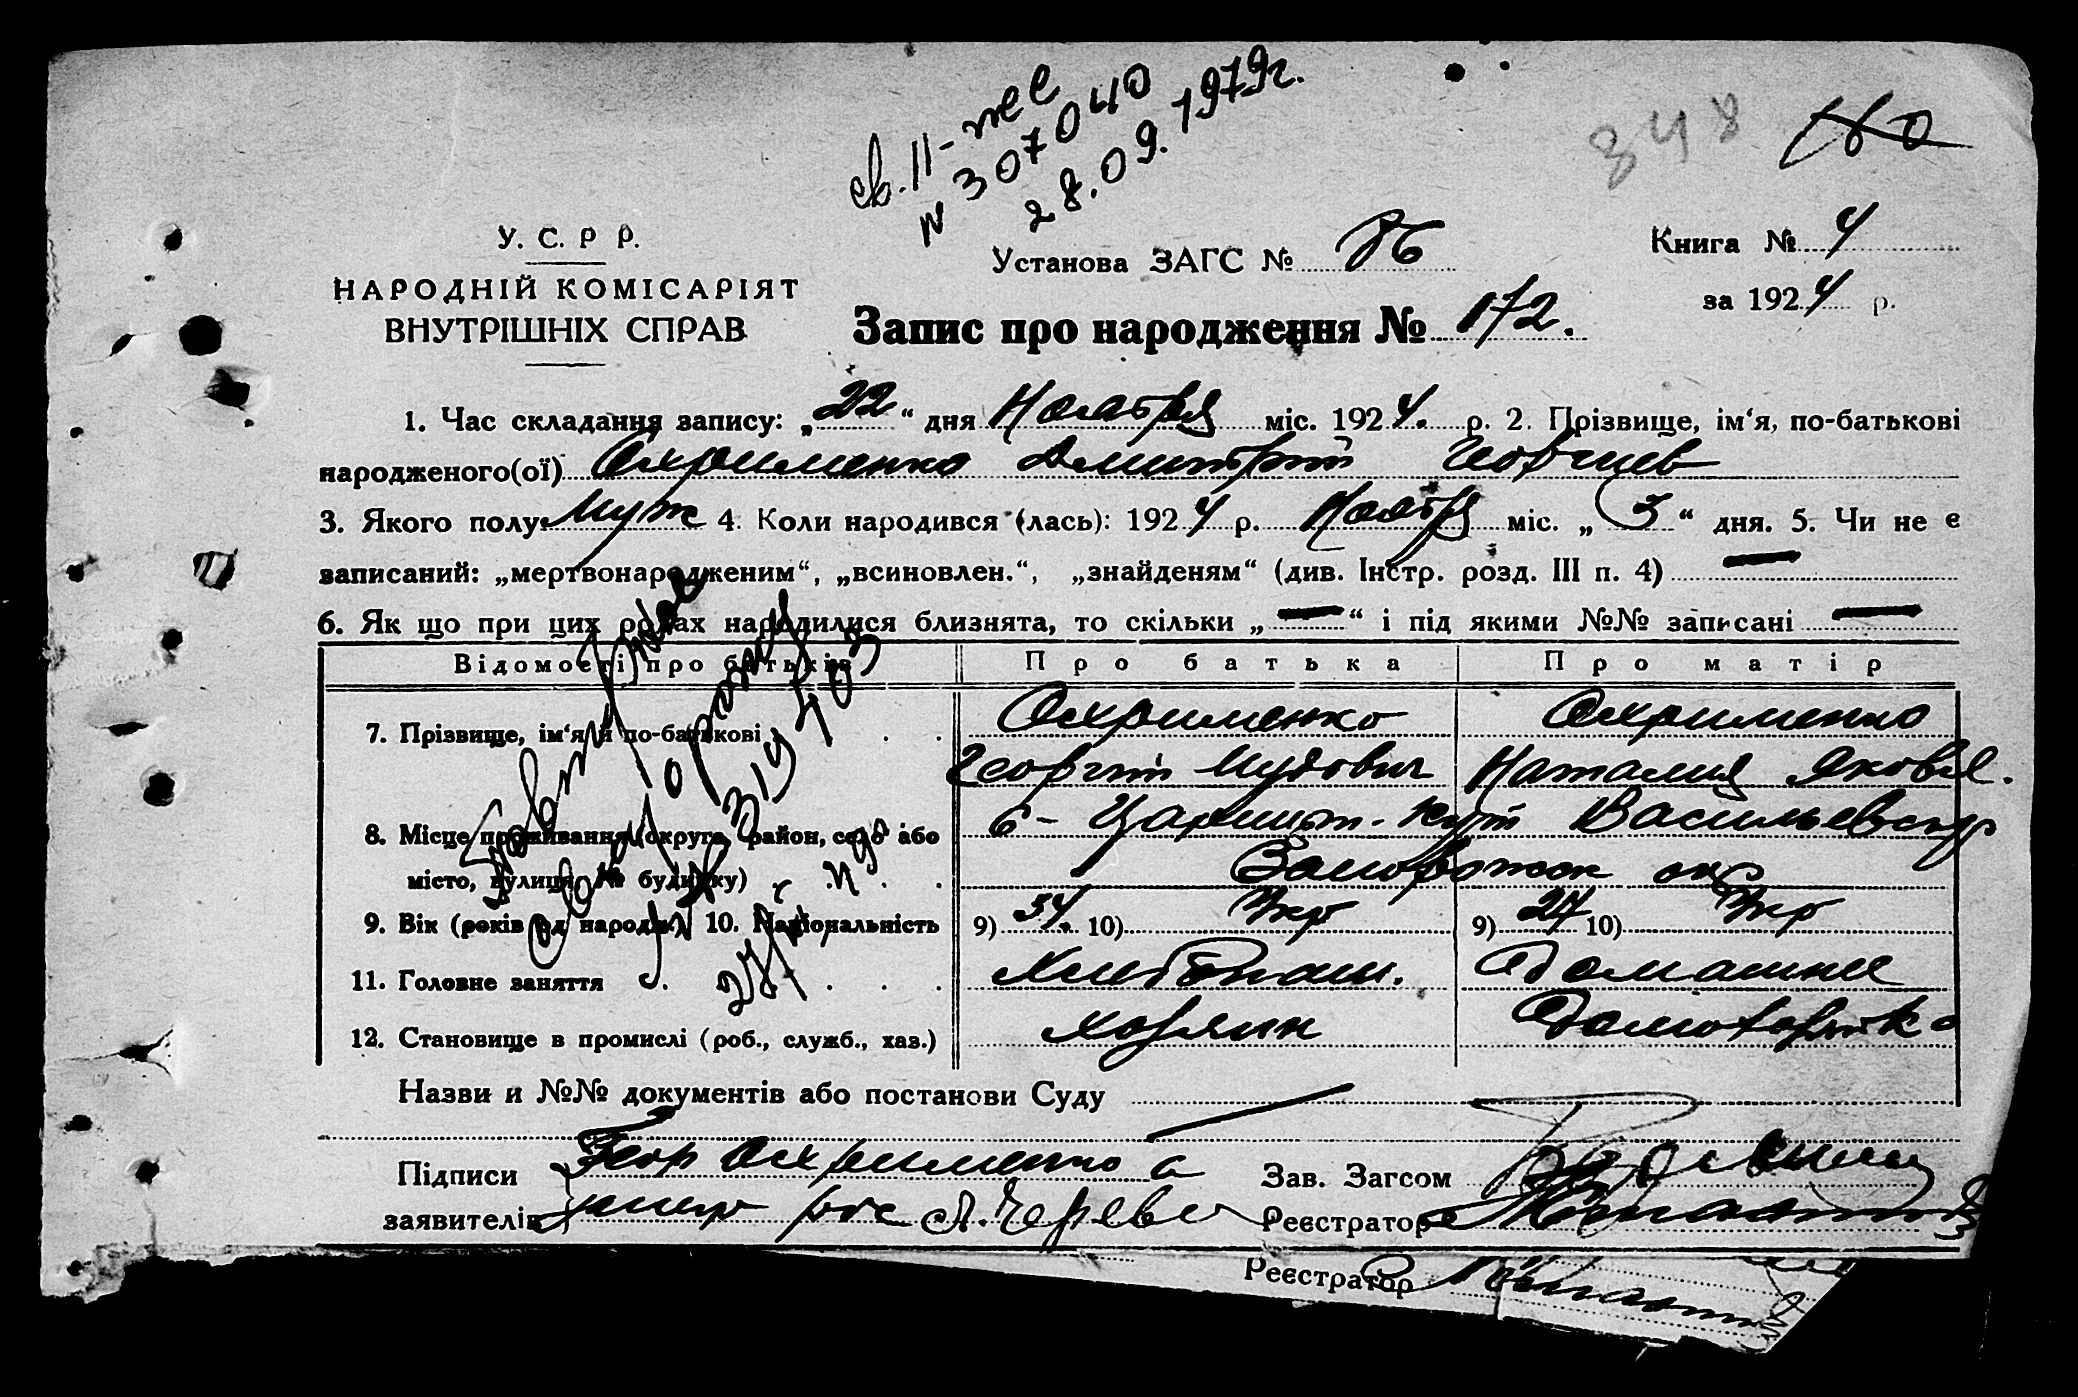 св. II-тее
№ 307040
28.09.1979г.
348
У. С. Р Р.
НАРОДНІЙ КОМІСАРІЯТ
ВНУТРІШНІХ СПРАВ
Установа ЗАГС № 86
Книга № 4
за 1924 р.
Запис про народження № 172.
1. Час складання запису: „22“ дня Ноября міс. 1924. р. 2. Прізвище, ім‘я, по-батькові
народженого(ої) Охрименко Дмитрий Георгиев
3. Якого полу: муж 4. Коли народився (лась): 1924 р. Ноября міс. „3“ дня. 5. Чи не є
записаний: „мертвонародженим“, „всиновлен.“, „знайденям“ (див. Інстр. розд. III п. 4) —
6. Як що при цих родах народилися близнята, то скільки „—“ і під якими №№ записані —
Відомості про батьків Про батька Про матір
7. Прізвище, ім‘я й по-батькові Охрименко Охрименко
Георгий Наталия Яковл.
8. Місце проживання (округа, район, село або Царицын-Кут Васильевск р
місто, вулиця, № будинку) Запорожск окр
9. Вік (років від народж.) 10. Національність 9) 34. 10) Укр 9) 27 10) Укр
11. Головне заняття Хлебопаш. Домашнее
12. Становище в промислі (роб., служб., хаз.) хозяин Домохозяйка
Назви и №№ документів або постанови Суду
Підписи Геор Охрименко а Зав. Загсом
заявителів Реєстратор
Реєстратор